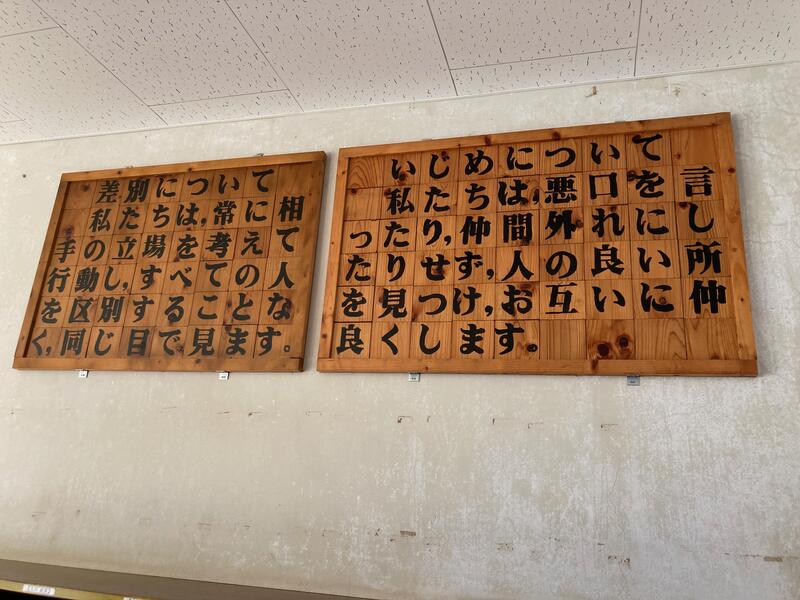 差別について
私たちは,常に相
手の立場を考えて
行動し,すべての人
を区別することな
く,同じ目で見ます。
いじめについて
私たちは,悪口を言
ったり,仲間外れにし
たりせず,人の良い所
を見つけ,お互いに仲
良くします。